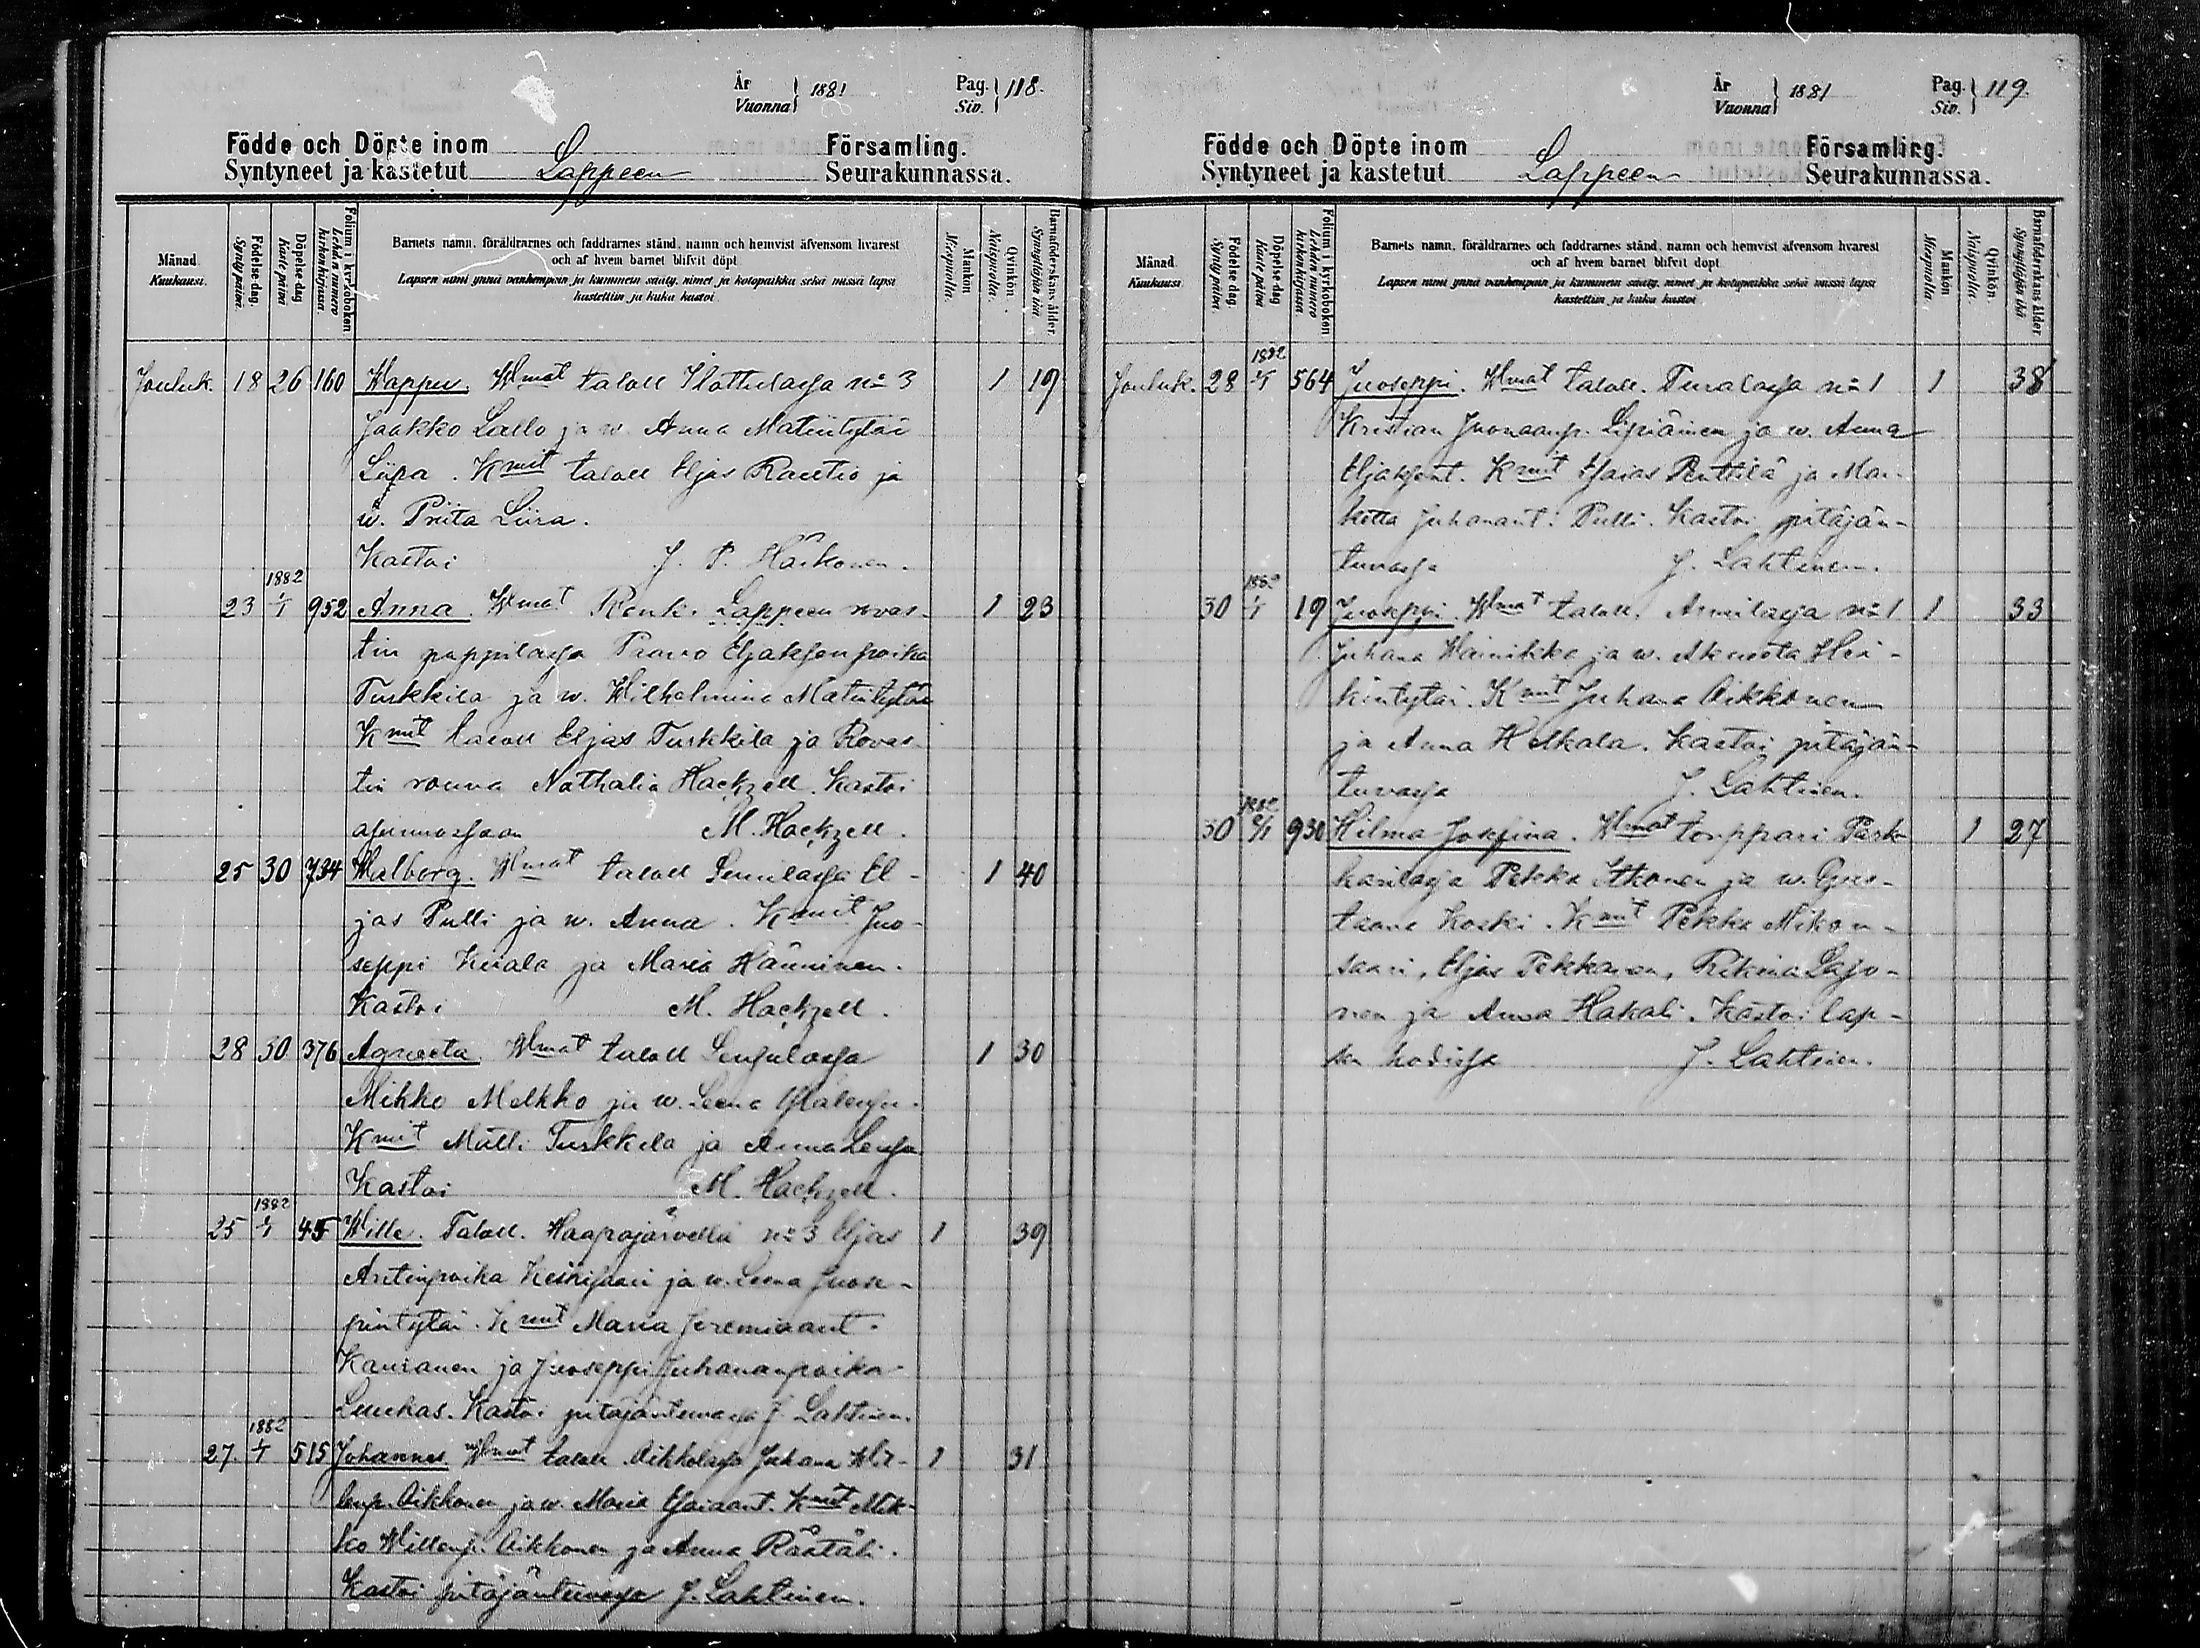 År
Vuonna } 1881
Pag.
Siv. } 118.
Födde och Döpte inom Församling.
Syntyneet ja kastetut Lappeen Seurakunnassa.
Månad Kuukausi.
Födelse dag. Synty päivä.
Döpelse dag Kaste päivä
Folium i kyrkoboken Lehden numero kirkonkirjassa
Barnets namn, föräldrarnes och faddrarnes stånd, namn och hemvist äfvensom hvarest
och af hvem barnet blifvit döpt
Lapsen nimi ynnä vanhempain ja kummein sääty, nimet ja kotopaikka sekä missä lapsi
kastettiin ja kuka kastoi
Mankön Miespuolia.
Qvinkön Naispuolia.
Barnaföderskans ålder Synnyttäjän ikä
Jouluk. 18 26 160 Wappu. Wmat taloll Ilottulassa No 3 1 19
Jaakko Lallo ja w. Anna Matintytär
Liipa. Kmit taloll Eljas Rautio ja
w. Priita Liira.
Kastoi J. P. Häikonen.
1882
23 1/1 952 Anna. Wmat Renki Lappeen rovas- 1 23
tin pappilassa Paavo Eljaksenpoika
Turkkila ja w. Wilhelmina Matintytär
Kmit taloll Eljas Turkkila ja Rovas-
tin rouva Nathalia Hackzell. Kastoi
asunnossaan M. Hackzell.
25 30 734 Walborg. Wmat taloll Lemilassa El- 1 40
jas Pulli ja w. Anna. Kmit Juo-
seppi Kuala ja Maria Hänninen.
Kastoi M. Hackzell.
28 30 376 Agneeta. Wmat taloll Sengulassa 1 30
Mikko Melkko ja w. Leena
Kmit Matti Turkkila ja Anna
Kastoi M. Hackzell.
1882
25 1/1 45 Wille. Taloll. Haapajärvellä No 3 Eljas 1 39
Antinpoika Keskisaari ja w. Leena Juose-
pintytär. Kmit Maria Jeremiaant.
Kauranen ja Juoseppi Juhananpoika
Kastoi pitäjäntuvassa J. Lahtinen.
1882
27. 1/1 515 Johannes Wmat taloll Aikkolassa Juhana Wil- 1 31
lenp. Aikkonen ja w. Maria Esaiaant. Kmit Mik-
ko Willenp. Aikkonen ja Anna Räätäli.
Kastoi pitäjäntuvassa J. Lahtinen.
År
Vuonna } 1881
Pag.
Siv. } 119.
Födde och Döpte inom Församling.
Syntyneet ja kastetut Lappeen Seurakunnassa.
Månad Kuukausi
Födelse dag. Synty päivä.
Döpelse dag Kaste päivä
Folium i kyrkoboken Lehden numero kirkonkirjassa
Barnets namn, föräldrarnes och faddrarnes stånd, namn och hemvist äfvensom hvarest
och af hvem barnet blifvit döpt
Lapsen nimi ynnä vanhempain ja kummein sääty, nimet ja kotopaikka sekä missä lapsi
kastettiin ja kuka kastoi
Mankön Miespuolia.
Qvinkön Naispuolia.
Barnaföderskans ålder Synnyttäjän ikä
1882
Jouluk. 28 1/1 564 Juoseppi. Wmat taloll. Turalassa No 1 1 38
Kristian Juonaanp. Lipiäinen ja w. Anna
Eljaksent. Kmit Esaias Penttilä ja Mar-
ketta Juhanant. Pulli. Kastoi pitäjän-
tuvassa J. Lahtinen.
1882
30 1/1 19 Juoseppi. Wmat taloll. Armilassa No 1 1 33
Juhana Wainikka ja w. Akneeta Hei-
kintytär. Kmit Juhana Aikkonen
ja Anna Helkala. Kastoi pitäjän-
tuvassa J. Lahtinen.
1882
30 6/1 930 Hilma Josefina. Wmat torppari Parko 1 27
karilassa Pekka Itkonen ja w. Gus-
taava Koski. Kmit Pekka Mikon-
saari, Eljas Pekkanen, Rikina Lajo-
nen ja Anna Hakali. Kastoi lap-
sen kodissa J. Lahtinen.